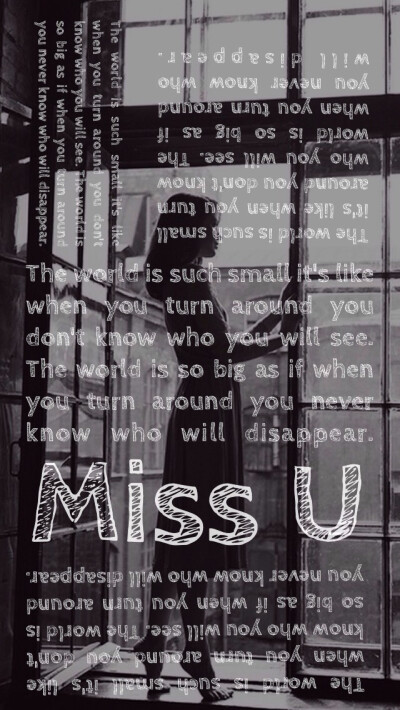 The world is such small it's like
when you turn around you don't
know who you will see. The world is
so big as if when you turn around
you never know who will disappear.
The world is such small
it's like when you turn
around you don't know
who you will see. The
world is so big as if
when you turn around
you never know who
will disappear.
The world is such small it's like
when you turn around you
don't know who you will see.
The world is so big as if when
you turn around you never
know who will disappear.
Miss U
The world is such small it's like
when you turn around you don't
know who you will see. The world is
so big as if when you turn around
you never know who will disappear.